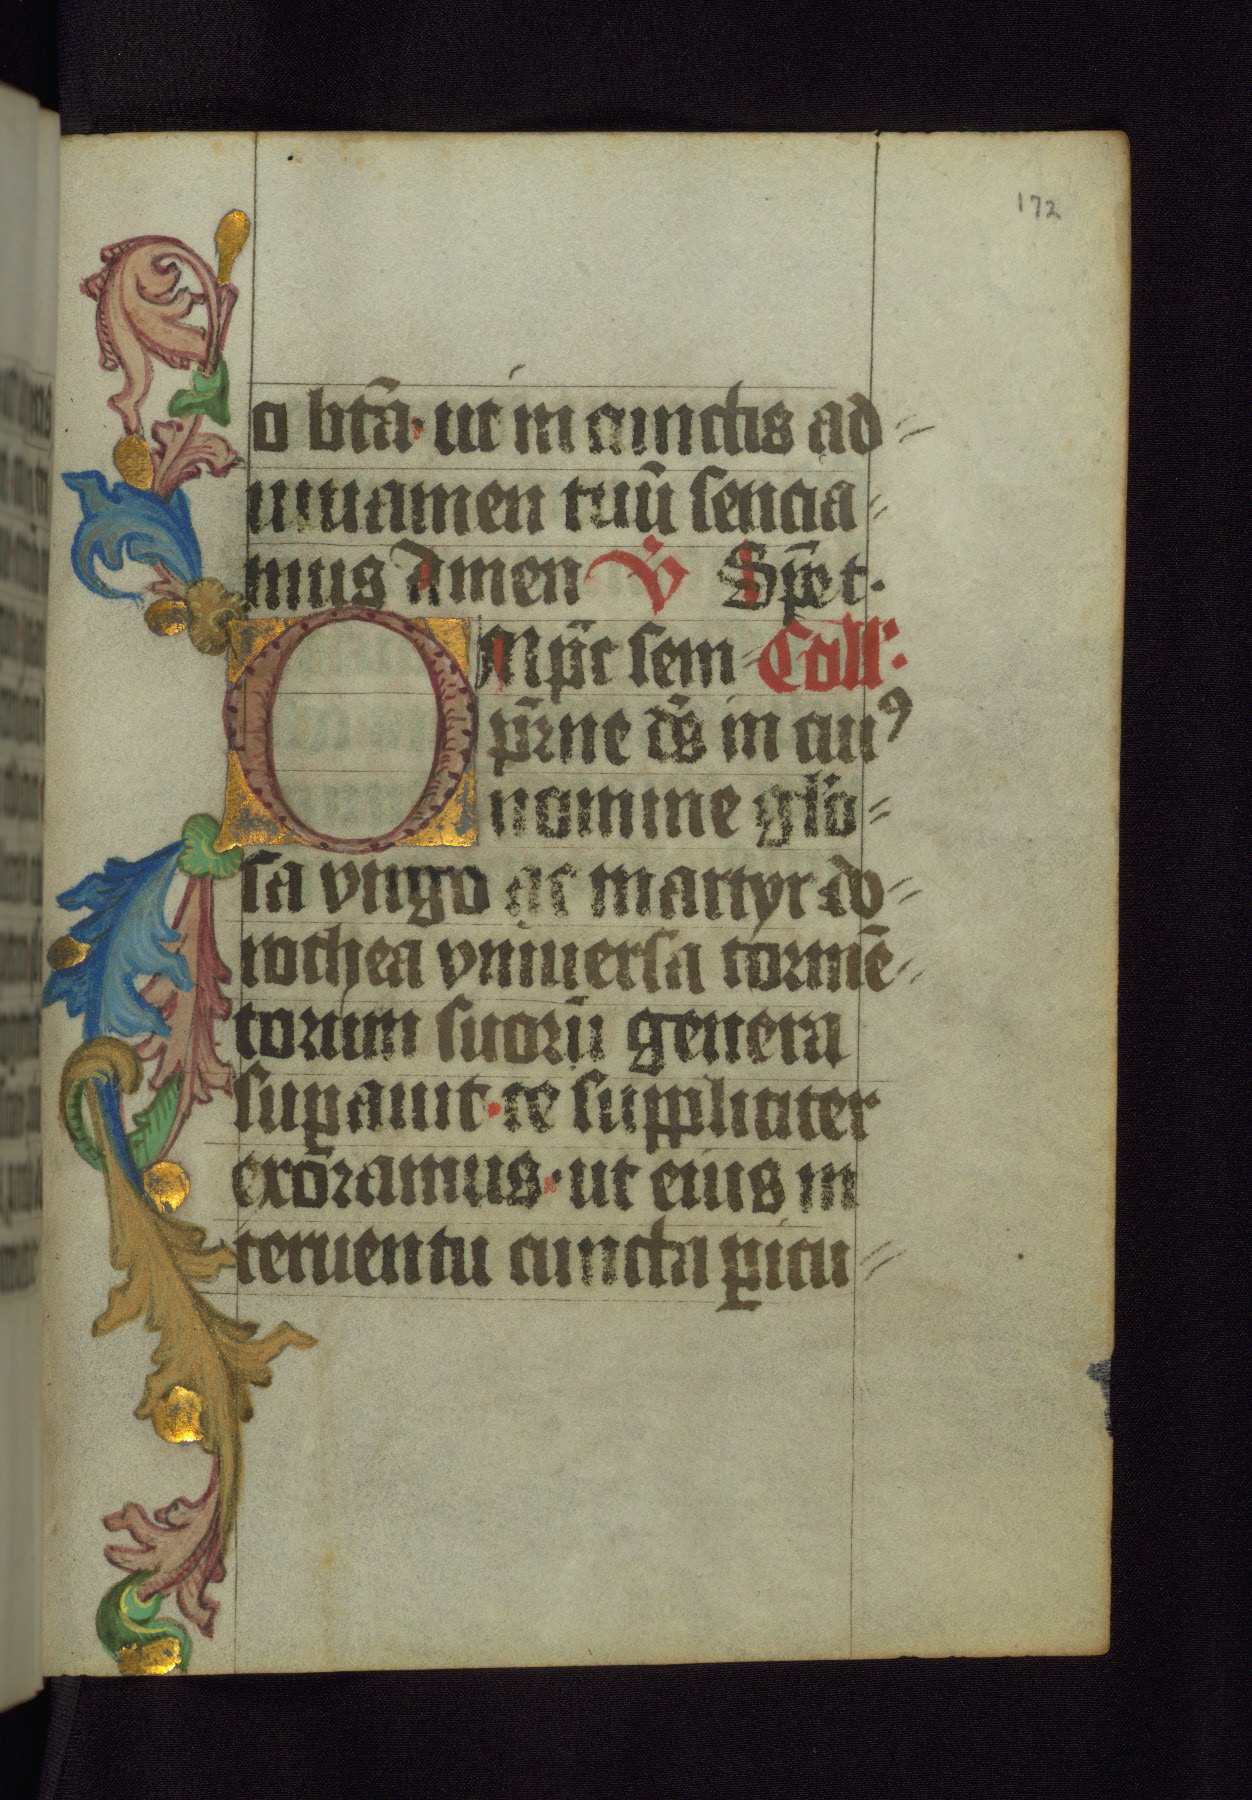 172
o btā· ut in cunctis ad
iuuamen tuū sencia
mus Amen V̄ Spē et·
Mp̄c sem Coll'·
p̄rne ds̄ in cuiꝰ
nomine glo
sa virgo ac martyr do
rothea vniuersa tormē
torum suorū genera
suꝑauit· te suppliciter
exoramus· ut eius in
teruentu cuncta ꝑicu